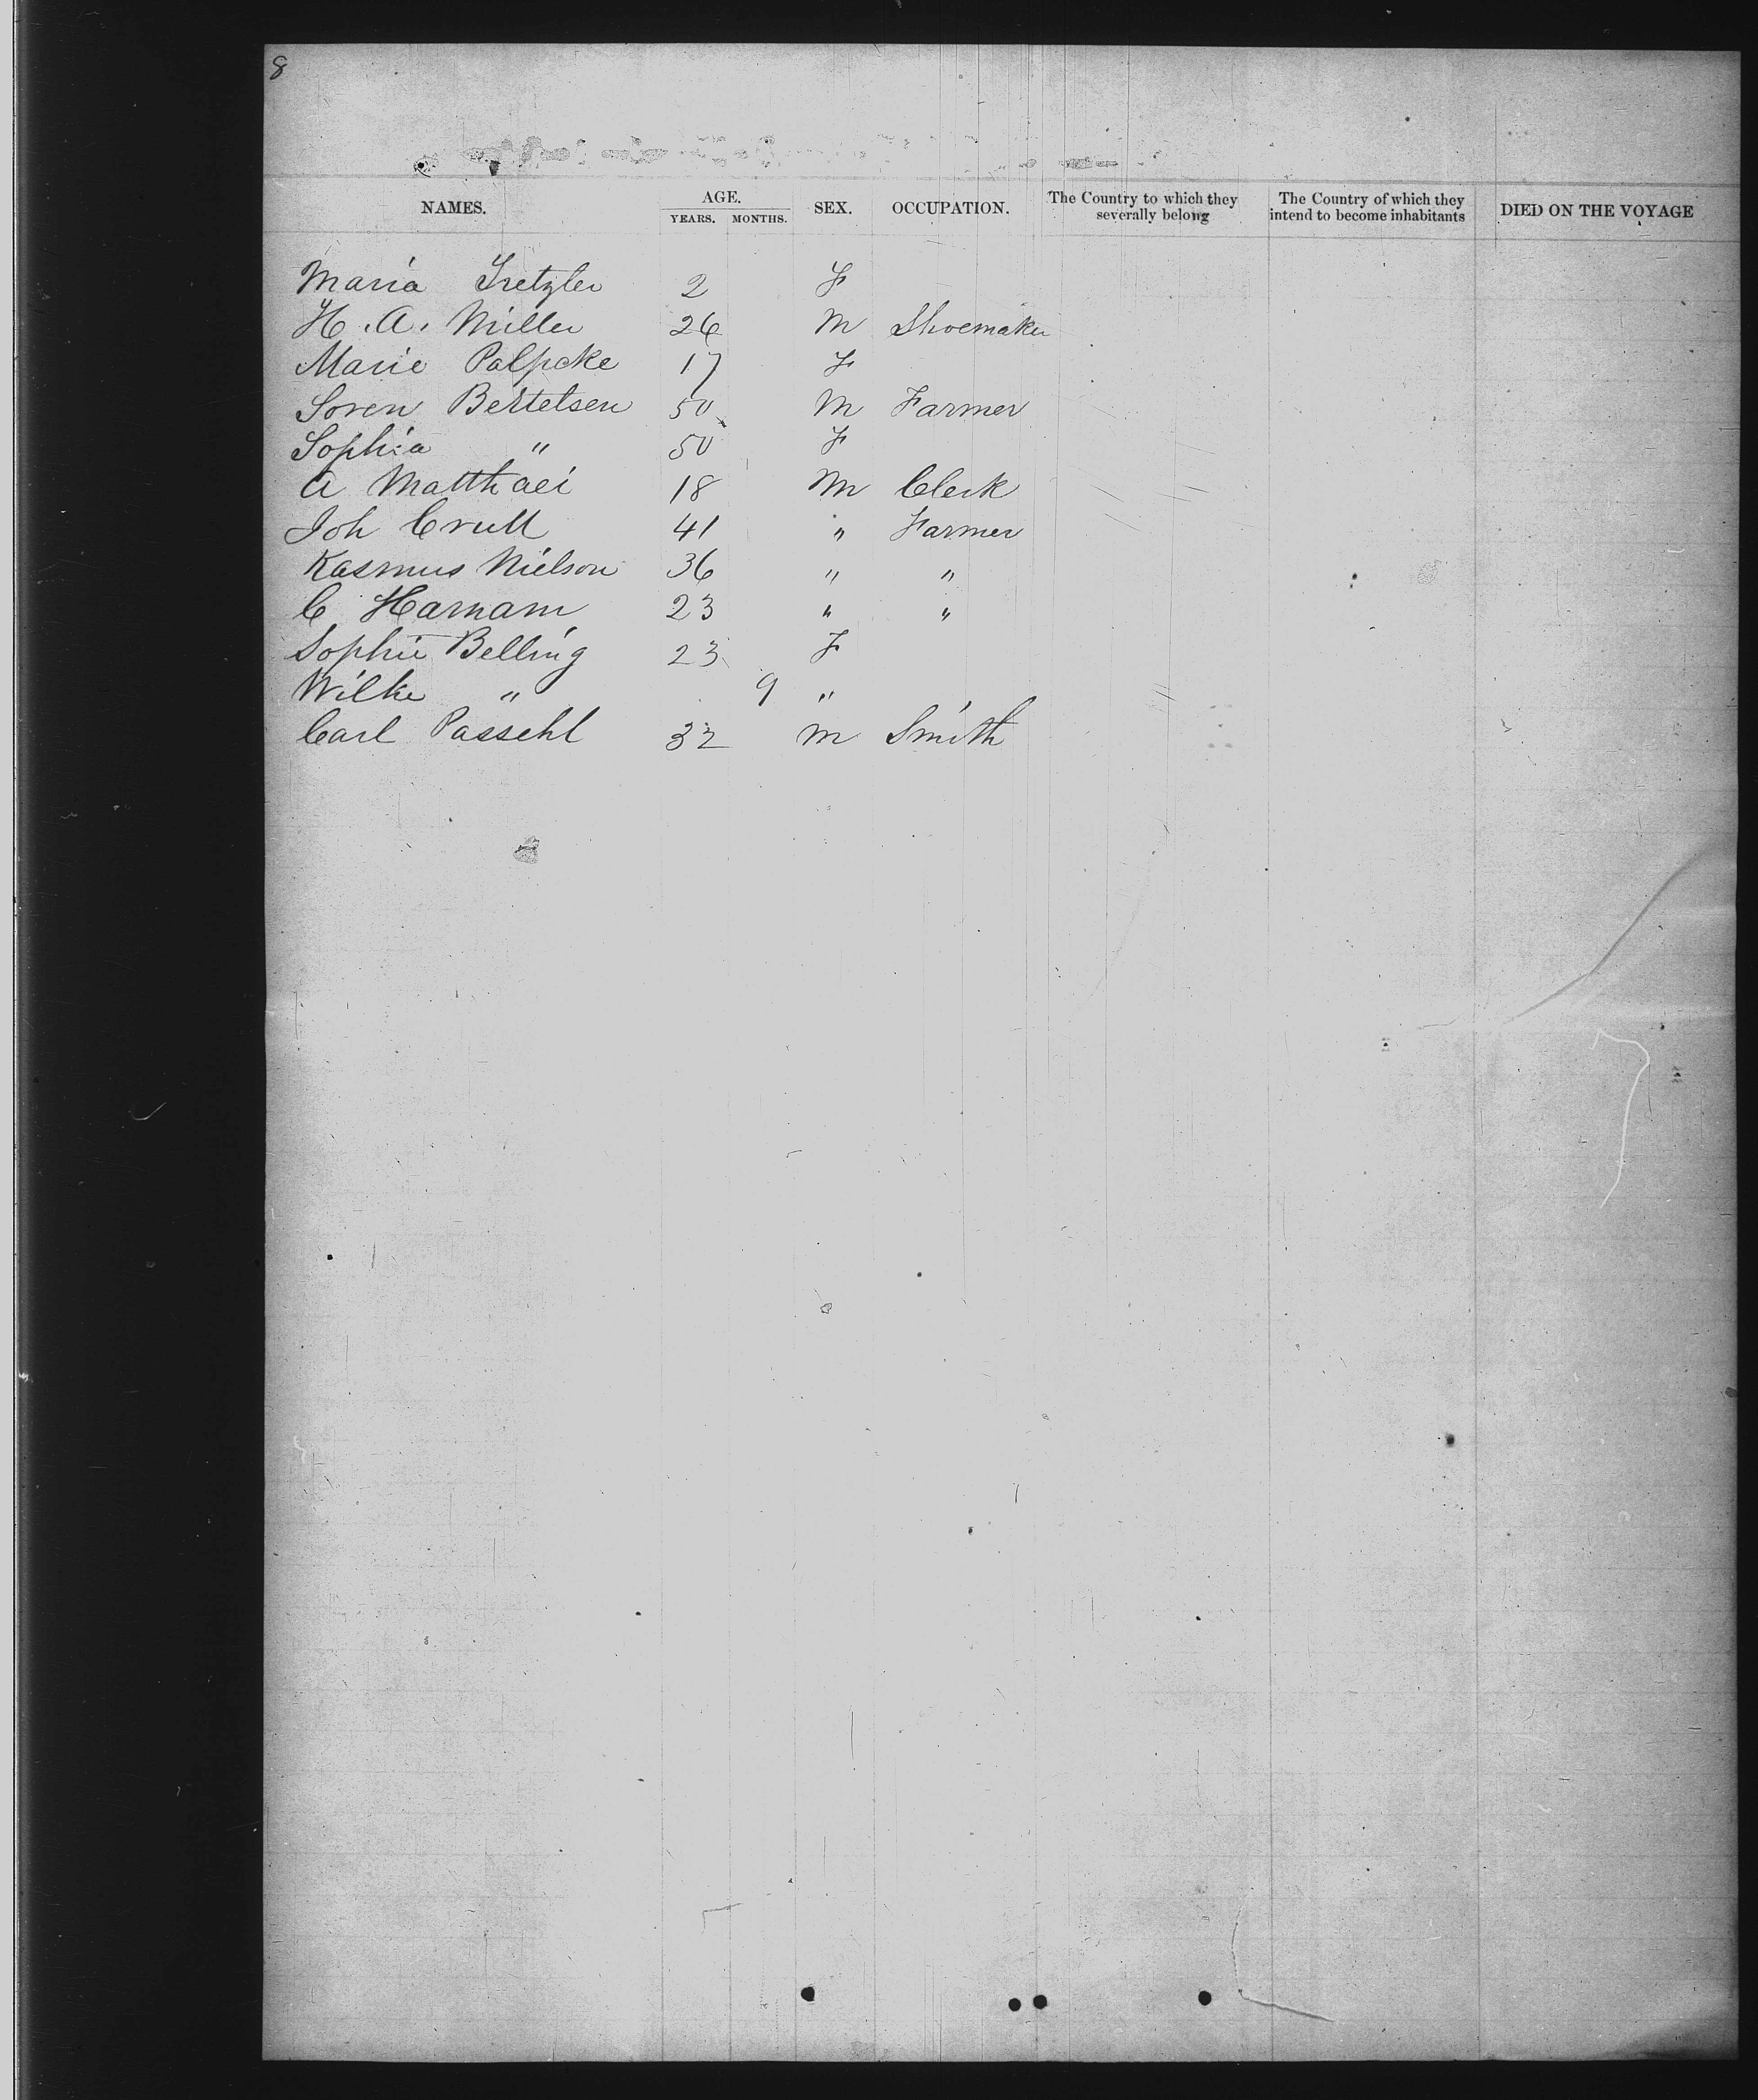 8
NAMES. AGE. SEX. OCCUPATION. The Country to which they severally belong The Country of which they intend to become inhabitants DIED ON THE VOYAGE
YEARS. MONTHS.
Maria Tretzler 2 F
H. A. Miller 26 M Shoemaker
Marie Palpcke 17 F
Soren Bertelsen 50 M Farmer
Sophia " 50 F
A Matthaei 18 M Clerk
Joh Crull 41 " Farmer
Rasmus Nielson 36 " "
C Harnam 23 " "
Sophie Belling 23 F
Wilke " 9 "
Carl Passehl 32 M Smith